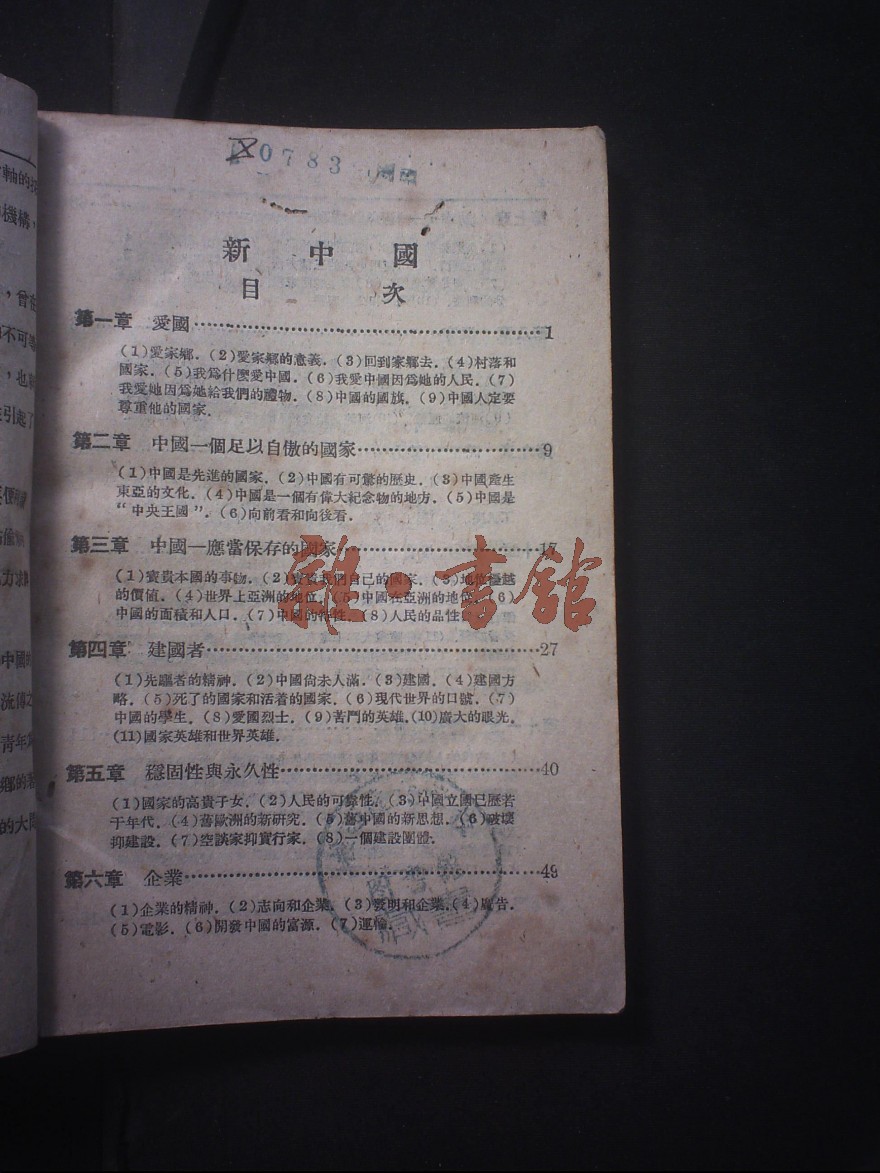 0783
新中國
目次
第一章 愛國 1
(1)愛家鄉. (2)愛家鄉的意義. (3)回到家鄉去. (4)村落和
國家. (5)我爲什麼愛中國. (6)我愛中國因爲她的人民. (7)
我愛她因爲她給我們的禮物. (8)中國的國旗. (9)中國人定要
尊重他的國家.
第二章 中國一個足以自傲的國家 9
(1)中國是先進的國家. (2)中國有可驚的歷史. (3)中國產生
東亞的文化. (4)中國是一個有偉大紀念物的地方. (5)中國是
“中央王國”. (6)向前看和向後看.
第三章 中國—應當保存的國家 17
(1)寶貴本國的事物. (2)寶貴我們自己的國家. (3)地位優越
的價值. (4)世界上亞洲的地位. (5)中國在亞洲的地位. (6)
中國的面積和人口. (7)中國的特性. (8)人民的品性
第四章 建國者 27
(1)先驅者的精神. (2)中國尙未人滿. (3)建國. (4)建國方
略. (5)死了的國家和活着的國家. (6)現代世界的口號. (7)
中國的學生. (8)愛國烈士. (9)苦鬥的英雄. (10)廣大的眼光.
(11)國家英雄和世界英雄.
第五章 穩固性與永久性 40
(1)國家的高貴子女. (2)人民的可靠性. (3)中國立國已歷若
干年代. (4)舊歐洲的新研究. (5)舊中國的新思想. (6)破壞
抑建設. (7)空談家抑實行家. (8)一個建設團體.
第六章 企業 49
(1)企業的精神. (2)志向和企業. (3)發明和企業. (4)廣告.
(5)電影. (6)開發中國的富源. (7)運輸.
雜·書館